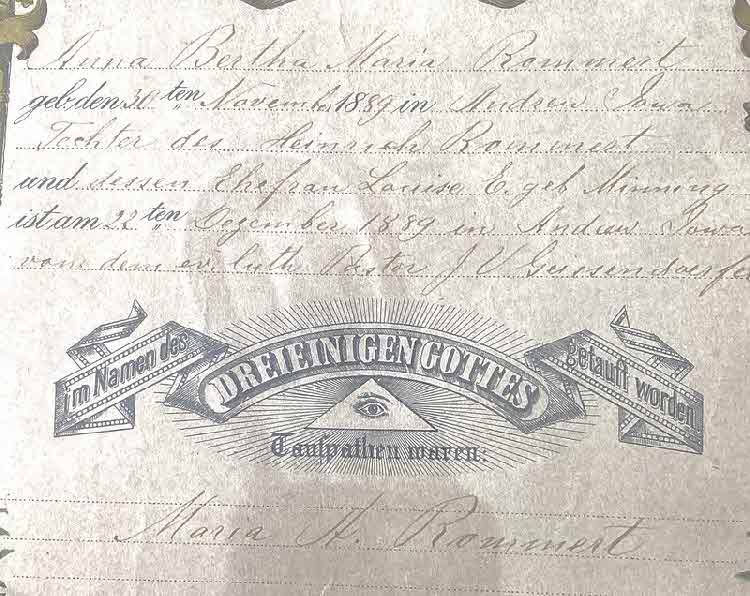 Anna Bertha Maria Rommert
geb. den 30 ten November 1889 in Andrew Iowa
Tochter des Heinrich Rommert
und dessen Ehefrau Louise E. geb Minning
ist am 22 ten Dezember 1889 in Andrew Iowa
von dem ev. luth Pastor J V
im Namen des DREIEINIGEN GOTTES getauft worden
Taufpathen waren:
Maria A. Rommert